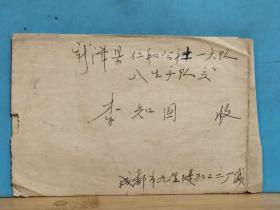 新津县仁和公社一大队
八生产队交
李知国 收
成都市九里堤712厂减